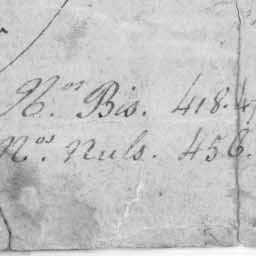 N.os Bis. 418. 4
N.os Nuls. 456.